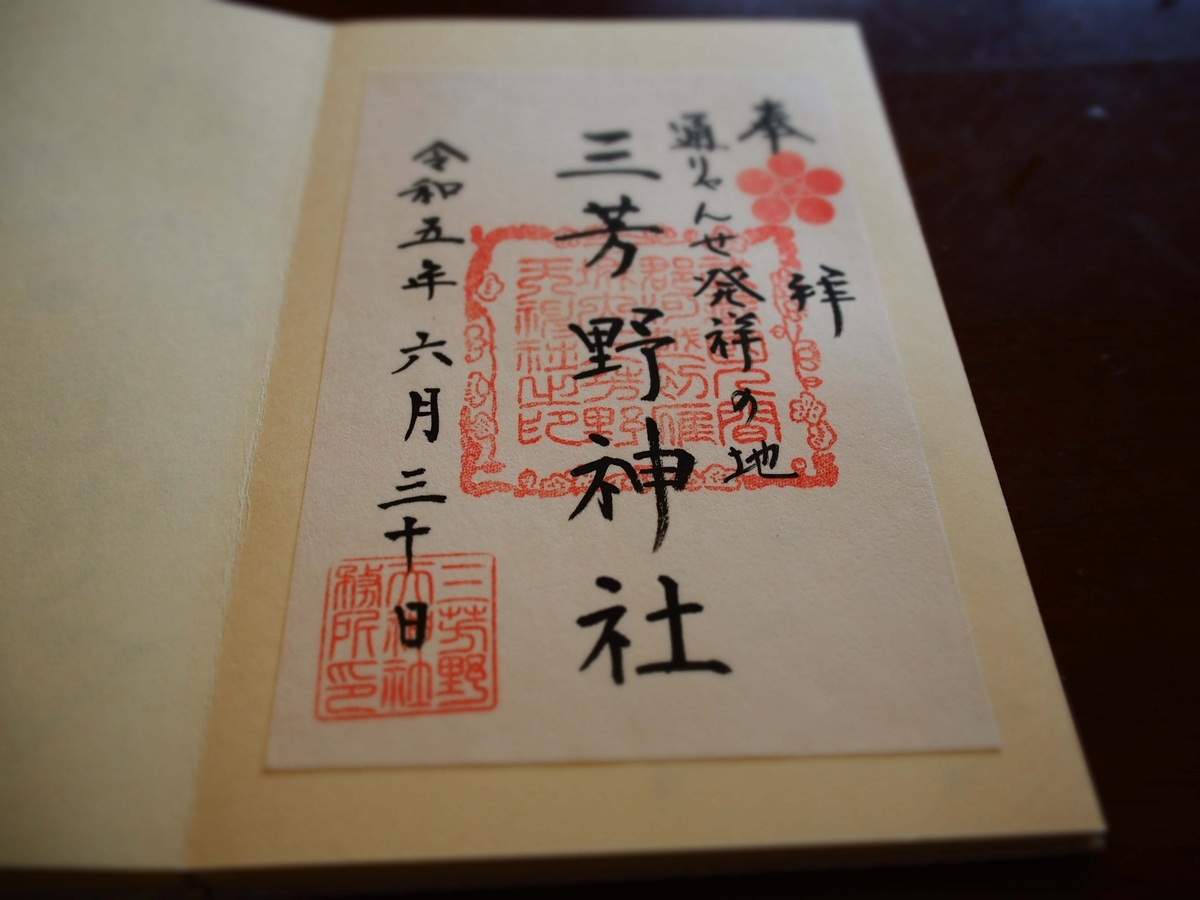 奉拝
通りゃんせ発祥の地
三芳野神社
令和五年六月三十日
三芳野
天神社
務所印